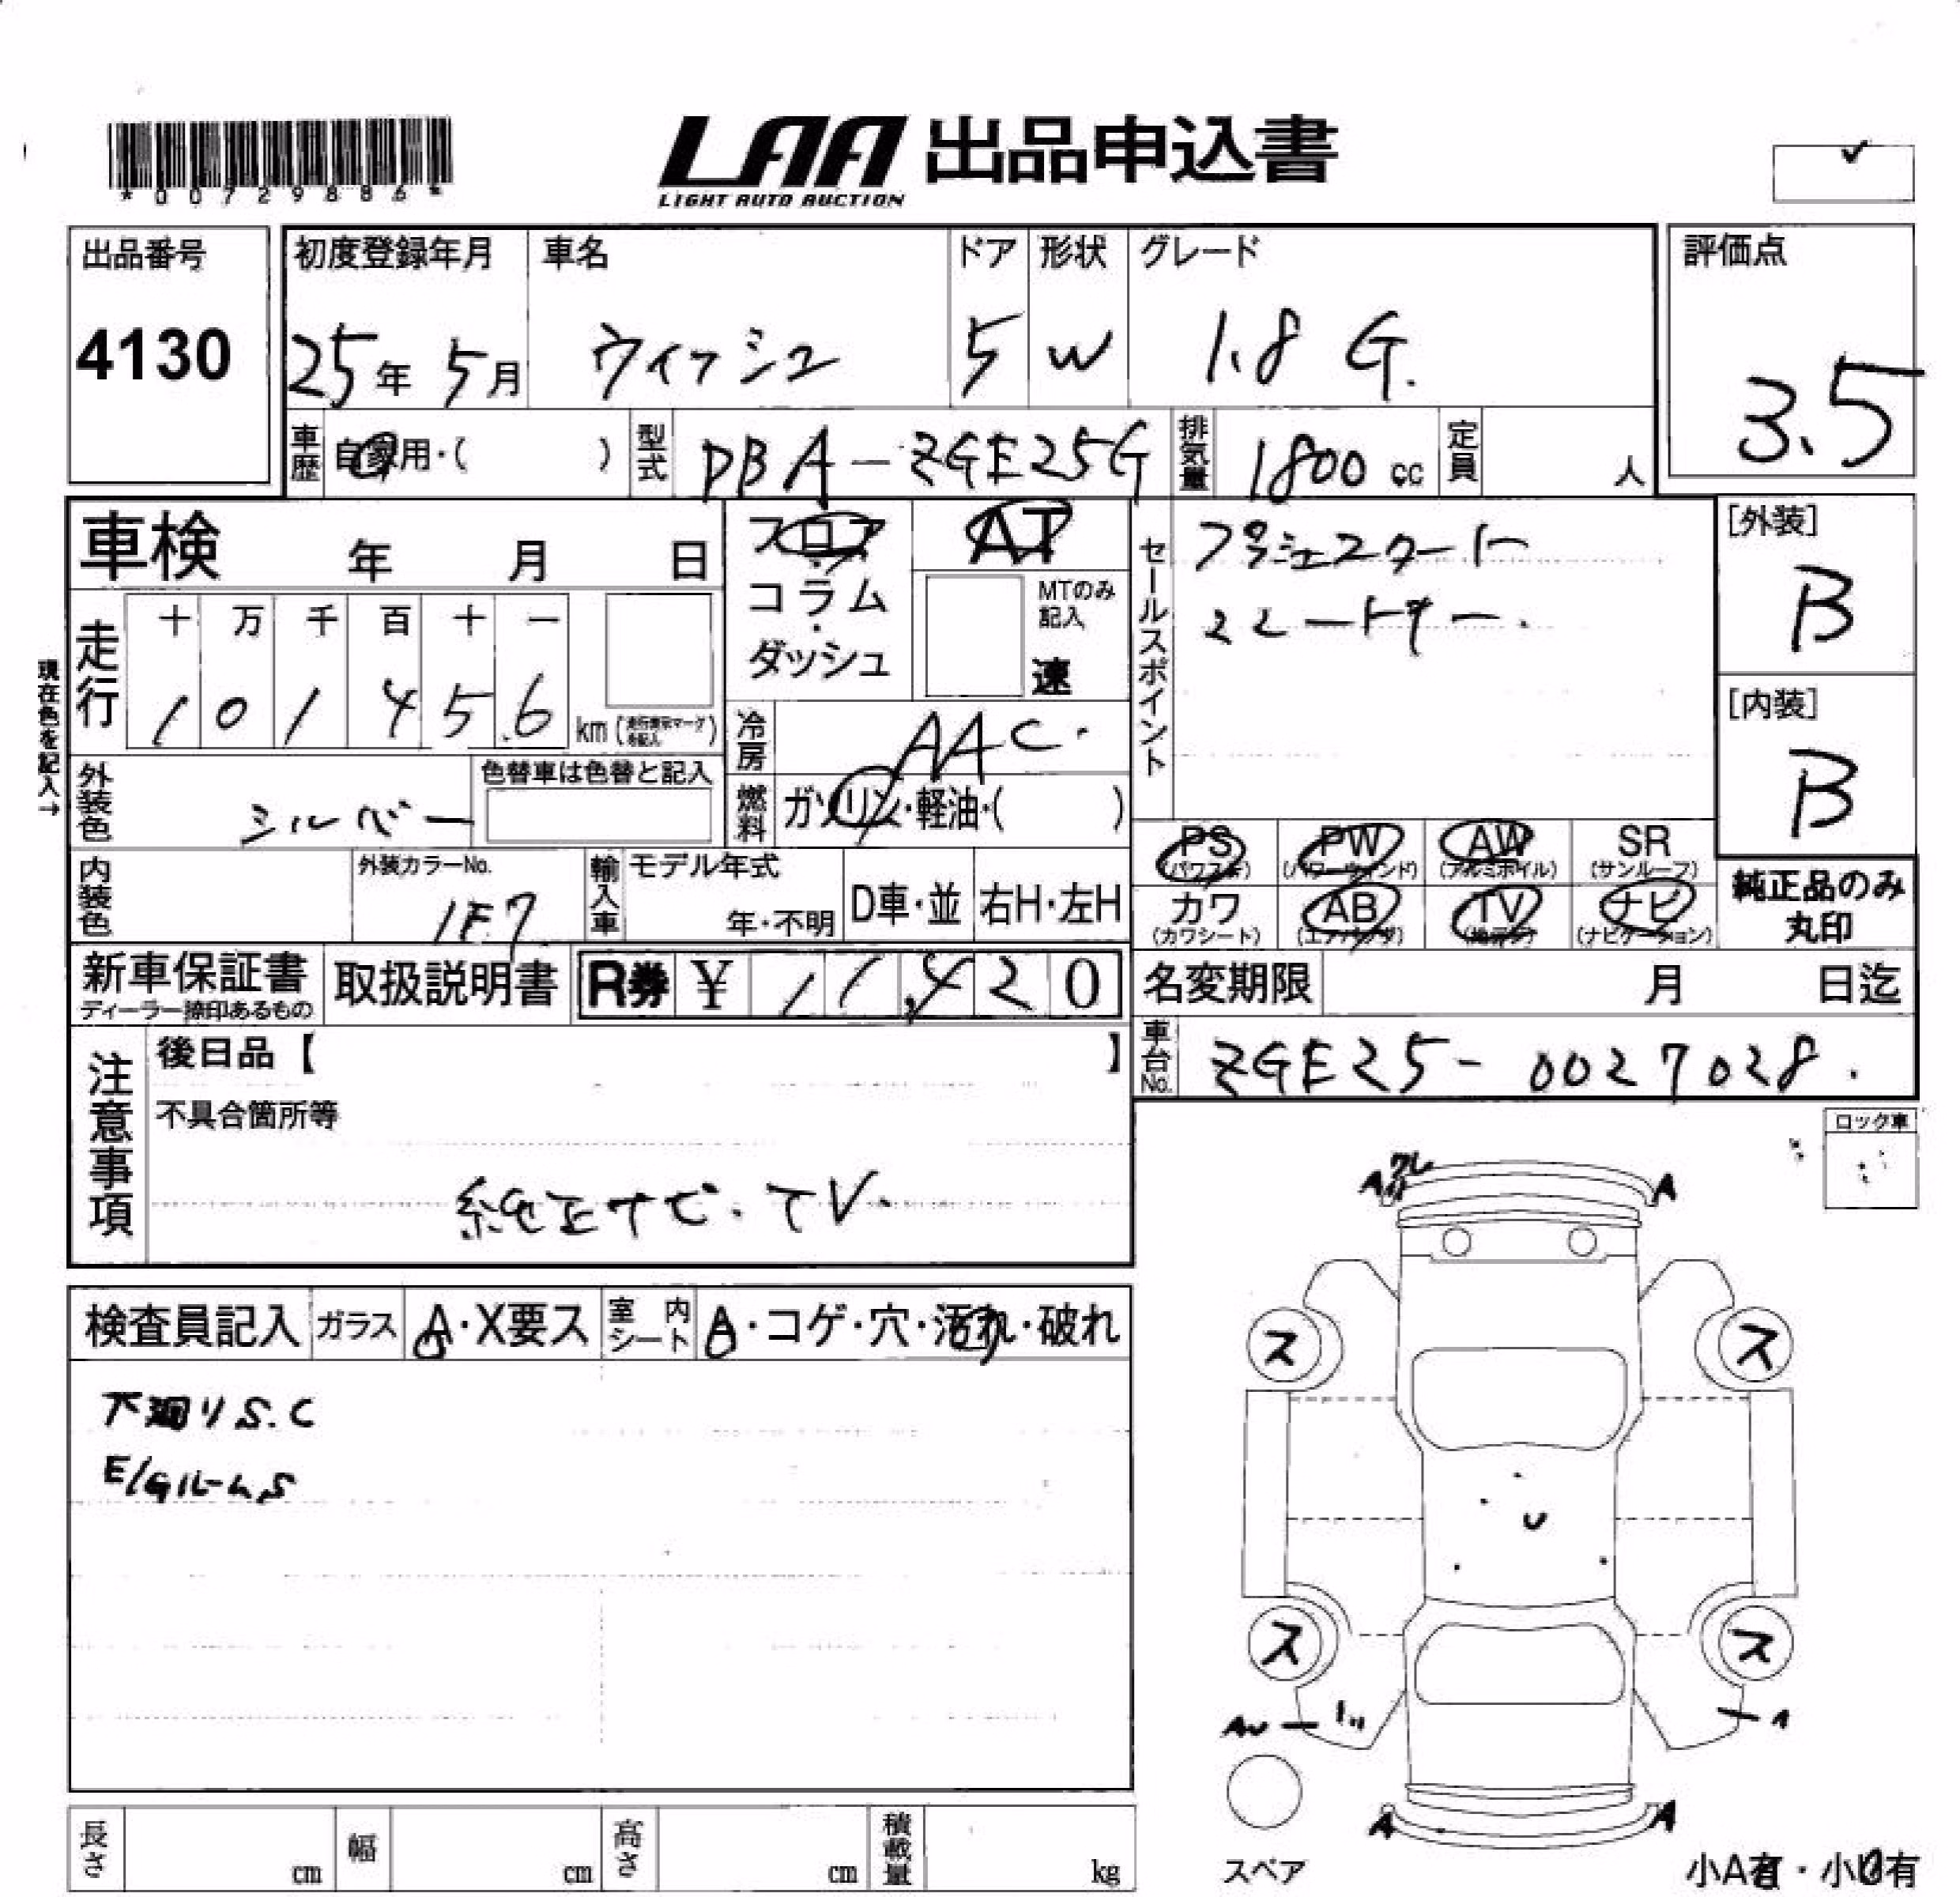 *00729886*
LAA 出品申込書
LIGHT AUTO AUCTION
出品番号
4130
初度登録年月
25年 5月
車名
ウィッシュ
ドア
5
形状
W
グレード
1.8 G.
評価点
3.5
車歴
自家用・( )
型式
DBA-ZGE25G
排気量
1800 cc
定員
人
車検 年 月 日
フロア
コラム
・
ダッシュ
AT
MTのみ
記入
速
セールスポイント
プッシュスタート
スマートキー.
[外装]
B
[内装]
B
現在色を記入→
走行
十 万 千 百 十 一
1 0 1 4 5 6
km (走行表示マークを記入)
冷房
AAC.
外装色
シルバー
色替車は色替と記入
燃料
ガソリン・軽油・( )
PS
(パワステ)
PW
(パワーウィンド)
AW
(アルミホイル)
SR
(サンルーフ)
カワ
(カワシート)
AB
(エアバッグ)
TV
ナビ
(ナビゲーション)
純正品のみ
丸印
内装色
外装カラーNo.
1E7
輸入車
モデル年式
年・不明
D車・並
右H・左H
新車保証書
ディーラー捺印あるもの
取扱説明書
R券 ¥ 11,420
名変期限 月 日迄
車台No.
ZGE25-0027028.
注意事項
後日品【 】
不具合箇所等
純正ナビ.TV.
ロック車
検査員記入
ガラス
A・X要ス
室内シート
A・コゲ・穴・汚れ・破れ
下廻りS.C
E/GルームS
A
A
ス
ス
U
ス
ス
AU
A
A
スペア
長さ cm
幅 cm
高さ cm
積載量 kg
小A有・小U有